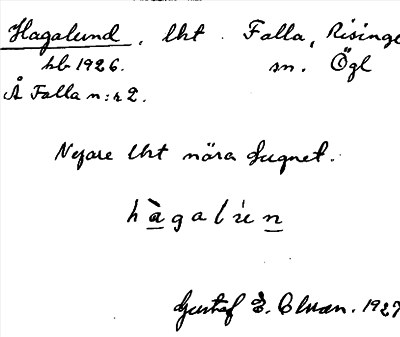 Hagalund, lht. Falla, Risinge
hb 1926. sn. Ögl
Å Falla n:r 2.
Nyare lht nära Lugnet.
h à g a l i e n
Gustaf E. 1927